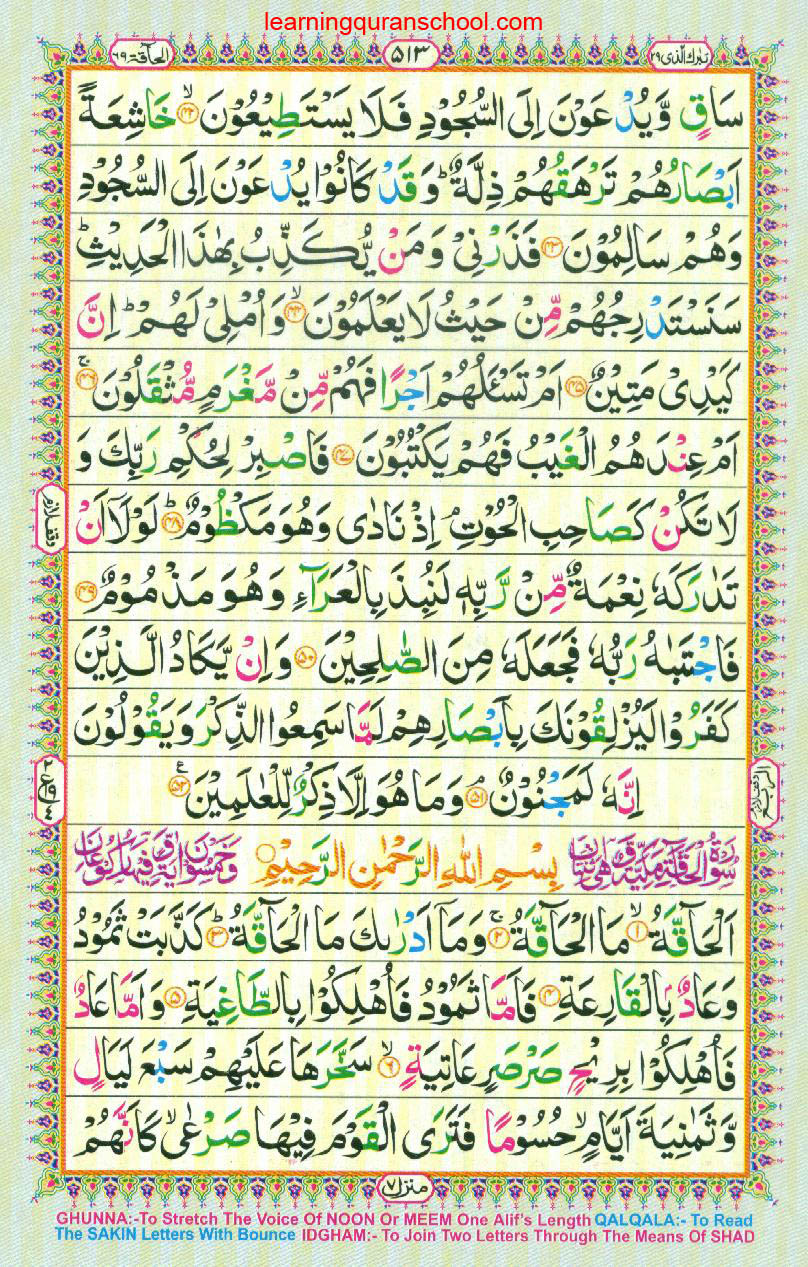 learningquranschool.com
تبٰرك الذی ۲۹
۵۱۳
الحآقة ۶۹
سَاقٍ وَّيُدْعَوْنَ اِلَى السُّجُوْدِ فَلَا يَسْتَطِيْعُوْنَ ﴿۴۲﴾ۙ خَاشِعَةً
اَبْصَارُهُمْ تَرْهَقُهُمْ ذِلَّةٌ ؕ وَقَدْ كَانُوْا يُدْعَوْنَ اِلَى السُّجُوْدِ
وَهُمْ سَالِمُوْنَ ﴿۴۳﴾ فَذَرْنِىْ وَمَنْ يُّكَذِّبُ بِهٰذَا الْحَدِيْثِ ؕ
سَنَسْتَدْرِجُهُمْ مِّنْ حَيْثُ لَا يَعْلَمُوْنَ ﴿۴۴﴾ۙ وَاُمْلِىْ لَهُمْ ؕ اِنَّ
كَيْدِىْ مَتِيْنٌ ﴿۴۵﴾ اَمْ تَسْـَٔلُهُمْ اَجْرًا فَهُمْ مِّنْ مَّغْرَمٍ مُّثْقَلُوْنَ ﴿۴۶﴾ۚ
اَمْ عِنْدَهُمُ الْغَيْبُ فَهُمْ يَكْتُبُوْنَ ﴿۴۷﴾ فَاصْبِرْ لِحُكْمِ رَبِّكَ وَ
لَا تَكُنْ كَصَاحِبِ الْحُوْتِ ۘ اِذْ نَادٰى وَهُوَ مَكْظُوْمٌ ﴿۴۸﴾ؕ لَوْلَاۤ اَنْ
تَدٰرَكَهٗ نِعْمَةٌ مِّنْ رَّبِّهٖ لَنُبِذَ بِالْعَرَآءِ وَهُوَ مَذْمُوْمٌ ﴿۴۹﴾
فَاجْتَبٰهُ رَبُّهٗ فَجَعَلَهٗ مِنَ الصّٰلِحِيْنَ ﴿۵۰﴾ وَاِنْ يَّكَادُ الَّذِيْنَ
كَفَرُوْا لَيُزْلِقُوْنَكَ بِاَبْصَارِهِمْ لَمَّا سَمِعُوا الذِّكْرَ وَيَقُوْلُوْنَ
اِنَّهٗ لَمَجْنُوْنٌ ﴿۵۱﴾ۘ وَمَا هُوَ اِلَّا ذِكْرٌ لِّلْعٰلَمِيْنَ ﴿۵۲﴾
سُوْرَةُ الْحَآقَّةِ مَكِّيَّةٌ وَّهِىَ اثْنَتَانِ بِسْمِ اللهِ الرَّحْمٰنِ الرَّحِيْمِ وَخَمْسُوْنَ اٰيَةً وَّفِيْهَا رُكُوْعَانِ
اَلْحَآقَّةُ ﴿۱﴾ۙ مَا الْحَآقَّةُ ﴿۲﴾ۚ وَمَاۤ اَدْرٰىكَ مَا الْحَآقَّةُ ﴿۳﴾ؕ كَذَّبَتْ ثَمُوْدُ
وَعَادٌۢ بِالْقَارِعَةِ ﴿۴﴾ فَاَمَّا ثَمُوْدُ فَاُهْلِكُوْا بِالطَّاغِيَةِ ﴿۵﴾ وَاَمَّا عَادٌ
فَاُهْلِكُوْا بِرِيْحٍ صَرْصَرٍ عَاتِيَةٍ ﴿۶﴾ۙ سَخَّرَهَا عَلَيْهِمْ سَبْعَ لَيَالٍ
وَّثَمٰنِيَةَ اَيَّامٍ ۙ حُسُوْمًا فَتَرَى الْقَوْمَ فِيْهَا صَرْعٰى ۙ كَاَنَّهُمْ
منزل ۷
GHUNNA:-To Stretch The Voice Of NOON Or MEEM One Alif's Length QALQALA:- To Read
The SAKIN Letters With Bounce IDGHAM:- To Join Two Letters Through The Means Of SHAD